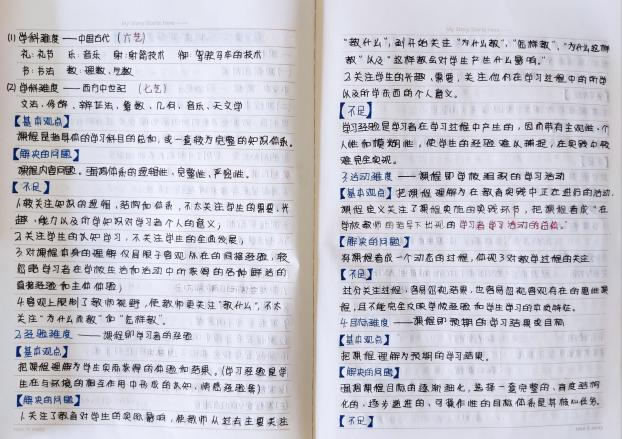 My Story Starts Here
(1) 学科维度 —— 中国古代 (六艺)
礼:礼节 乐:音乐 射:射箭技术 御:驾驭马车的技术
书:书法 数:理数、气数
(2) 学科维度 —— 西方中世纪 (七艺)
文法、修辞、辩证法、算数、几何、音乐、天文学
【基本观点】
课程是指具体的学习科目的总和,或一套较为完整的知识体系。
【解决的问题】
课程内容问题。强调体系的逻辑性、完整性、严密性。
【不足】
1.较关注知识的逻辑,结构和体系,不太关注学生的需要,兴
趣、能力以及所学知识对学习者个人的意义;
2.关注学生的认知学习,不关注学生的全面发展;
3.对课程本身的理解仅局限于客观存在的间接经验,较
忽略学习者在学校生活和活动中所获得的各种鲜活的
直接经验和主体体验;
4.客观上限制了教师视野,使教师更关注“教什么”,不太
关注“为什么而教”和“怎样教”。
2.经验维度 —— 课程即学习者的经验
【基本观点】
把课程理解为学生实际获得的体验和结果。(学习经验是学
生在与环境的相互作用中形成的认知,情感经验等)
【解决的问题】
1.关注了教育对学生的实际影响,使教师从过去主要关注
My Story Starts Here
“教什么”,到开始关注“为什么教”,“怎样教”,“为什么这样
教”以及“这样教会对学生产生什么影响。”
2.关注学习者的兴趣、需要,关注他们在学习过程中的所学
以及所学东西的个人意义。
【不足】
学习经验是学习者在学习过程中产生的,因而带有主观性、个
人性和模糊性,使学生的经验难以捕捉,在实践中较
难完全实现。
3.活动维度 —— 课程即学校组织的学习活动
【基本观点】把课程理解为在教育实践中正在进行的活动.
课程定义关注了课程实施的实践环节,把课程看成“在
学校教师的指导下出现的学习者学习活动的总体。”
【解决的问题】
将课程看成一个动态的过程,体现了对教学过程的关注
【不足】
过分关注过程,容易忽视结果,也容易忽视客观存在的隐性课
程,且不能完全反映学校经验和学生学习的本质特征。
4.目标维度 —— 课程即预期的学习结果或目标
【基本观点】
把课程理解为预期的学习结果。
【解决的问题】
强调课程目标的逐渐细化,选择一套完整的、高度结构
化的、逐步递进的、可操作性的目标体系是其核心任务。
【不足】